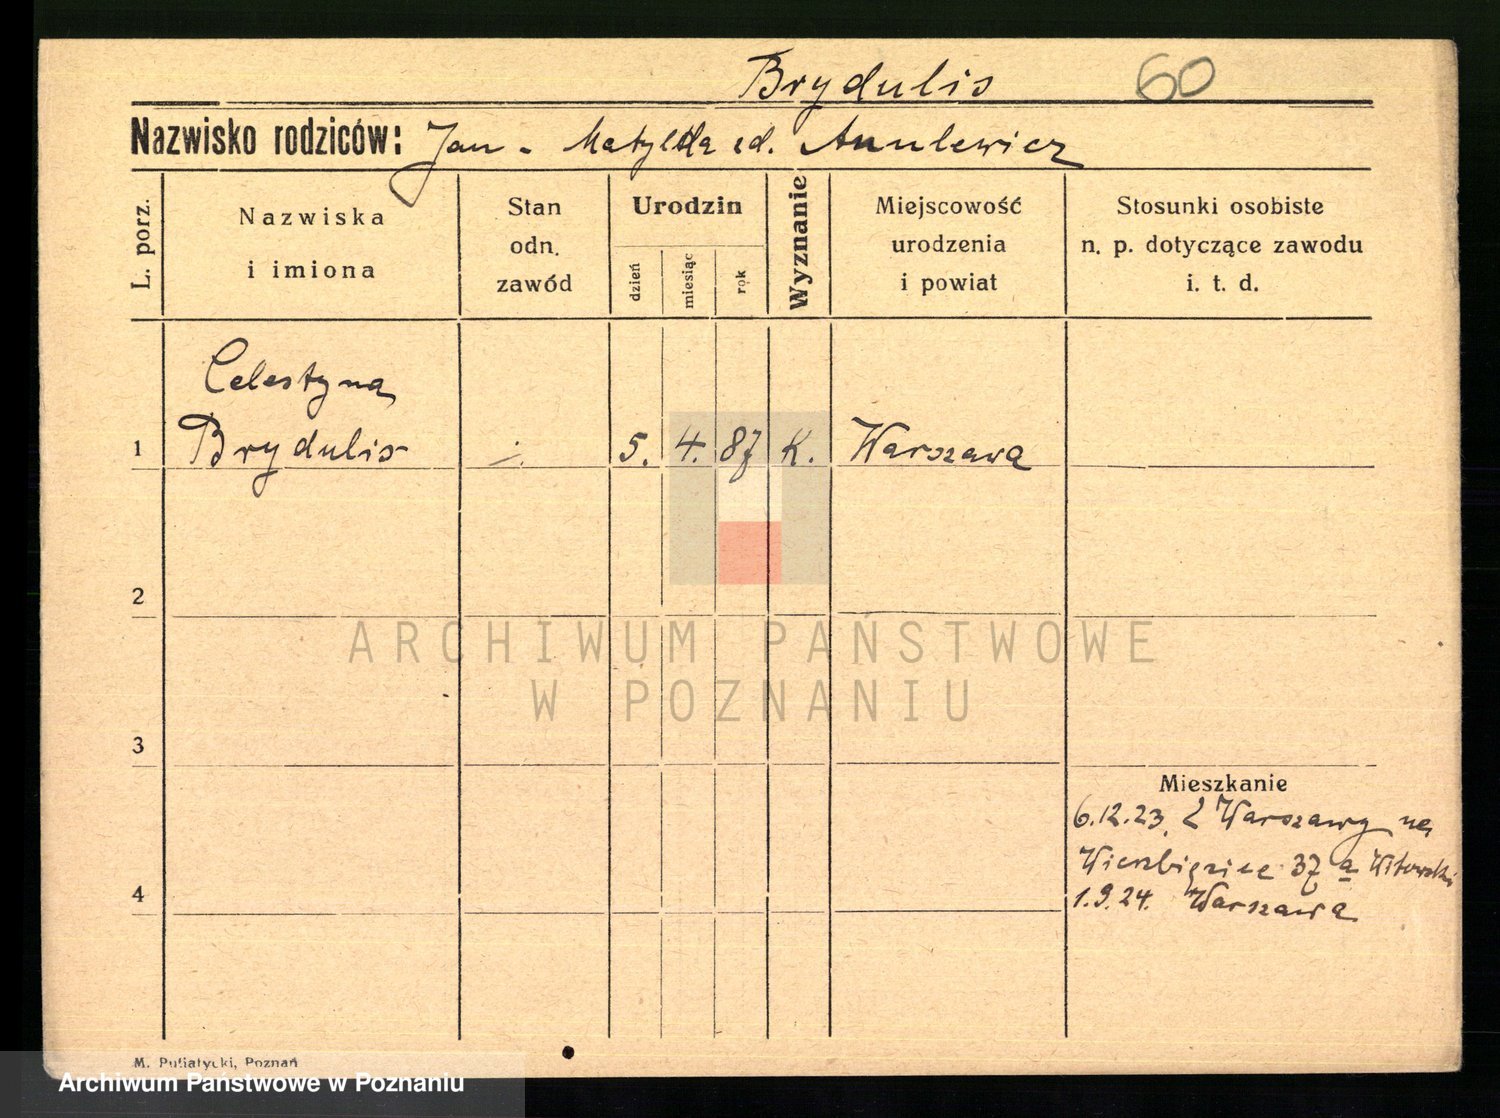 Brydulis 60
Nazwisko rodziców: Jan - Matylda zd. Anulewicz
L. porz.
Nazwiska
i imiona
Stan
odn.
zawód
Urodzin
dzień
miesiąc
rok
Wyznanie
Miejscowość
urodzenia
i powiat
Stosunki osobiste
n. p. dotyczące zawodu
i. t. d.
Celestyna
1 Brydulis 5. 4. 87 K. Warszawa
2
ARCHIWUM PAŃSTWOWE
W POZNANIU
3
Mieszkanie
6.12.23. Z Warszawy na
Wierzbięcice 37 a Witowski
4 1.9.24. Warszawa
M. Putiatycki, Poznań
Archiwum Państwowe w Poznaniu